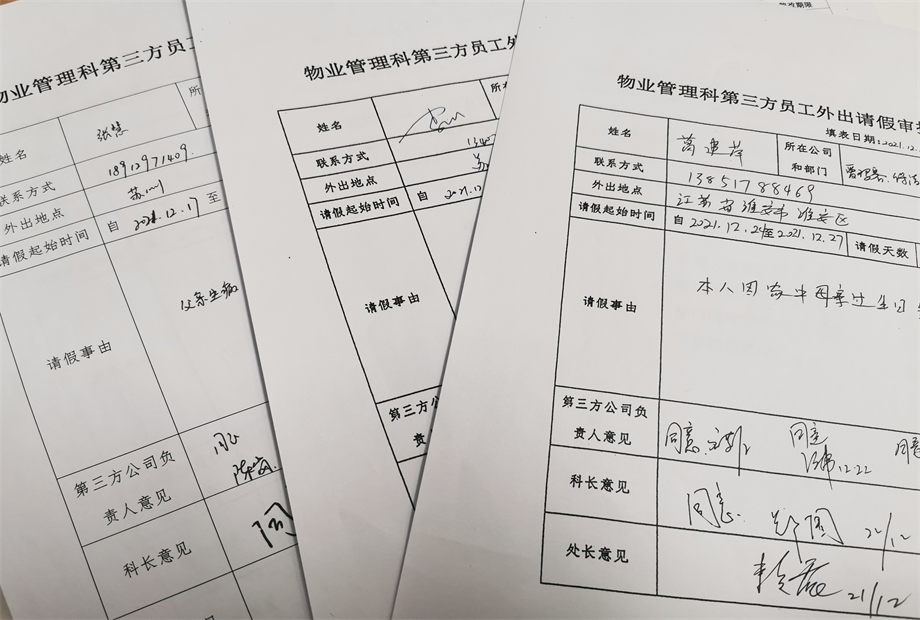 物业管理科第三方员工
姓名
张慧
所
联系方式
18912971409
外出地点
苏州
请假起始时间
自 2021.12.17 至
请假事由
父亲生病
第三方公司负
责人意见
同意
科长意见
同
物业管理科第三方员工外
姓名
所在
联系方式
外出地点
苏
请假起始时间
自 2021.12
请假事由
第三方公
责人意见
物业管理科第三方员工外出请假审批
填表日期：2021.12.
姓名
所在公司
和部门
联系方式
13851788469
外出地点
江苏省淮安市淮安区
请假起始时间
自 2021.12.24 至 2021.12.27
请假天数
请假事由
本人因家中母亲过生日
第三方公司负
责人意见
同意
同意
同意
12.22
科长意见
同意
21/12
处长意见
21/12